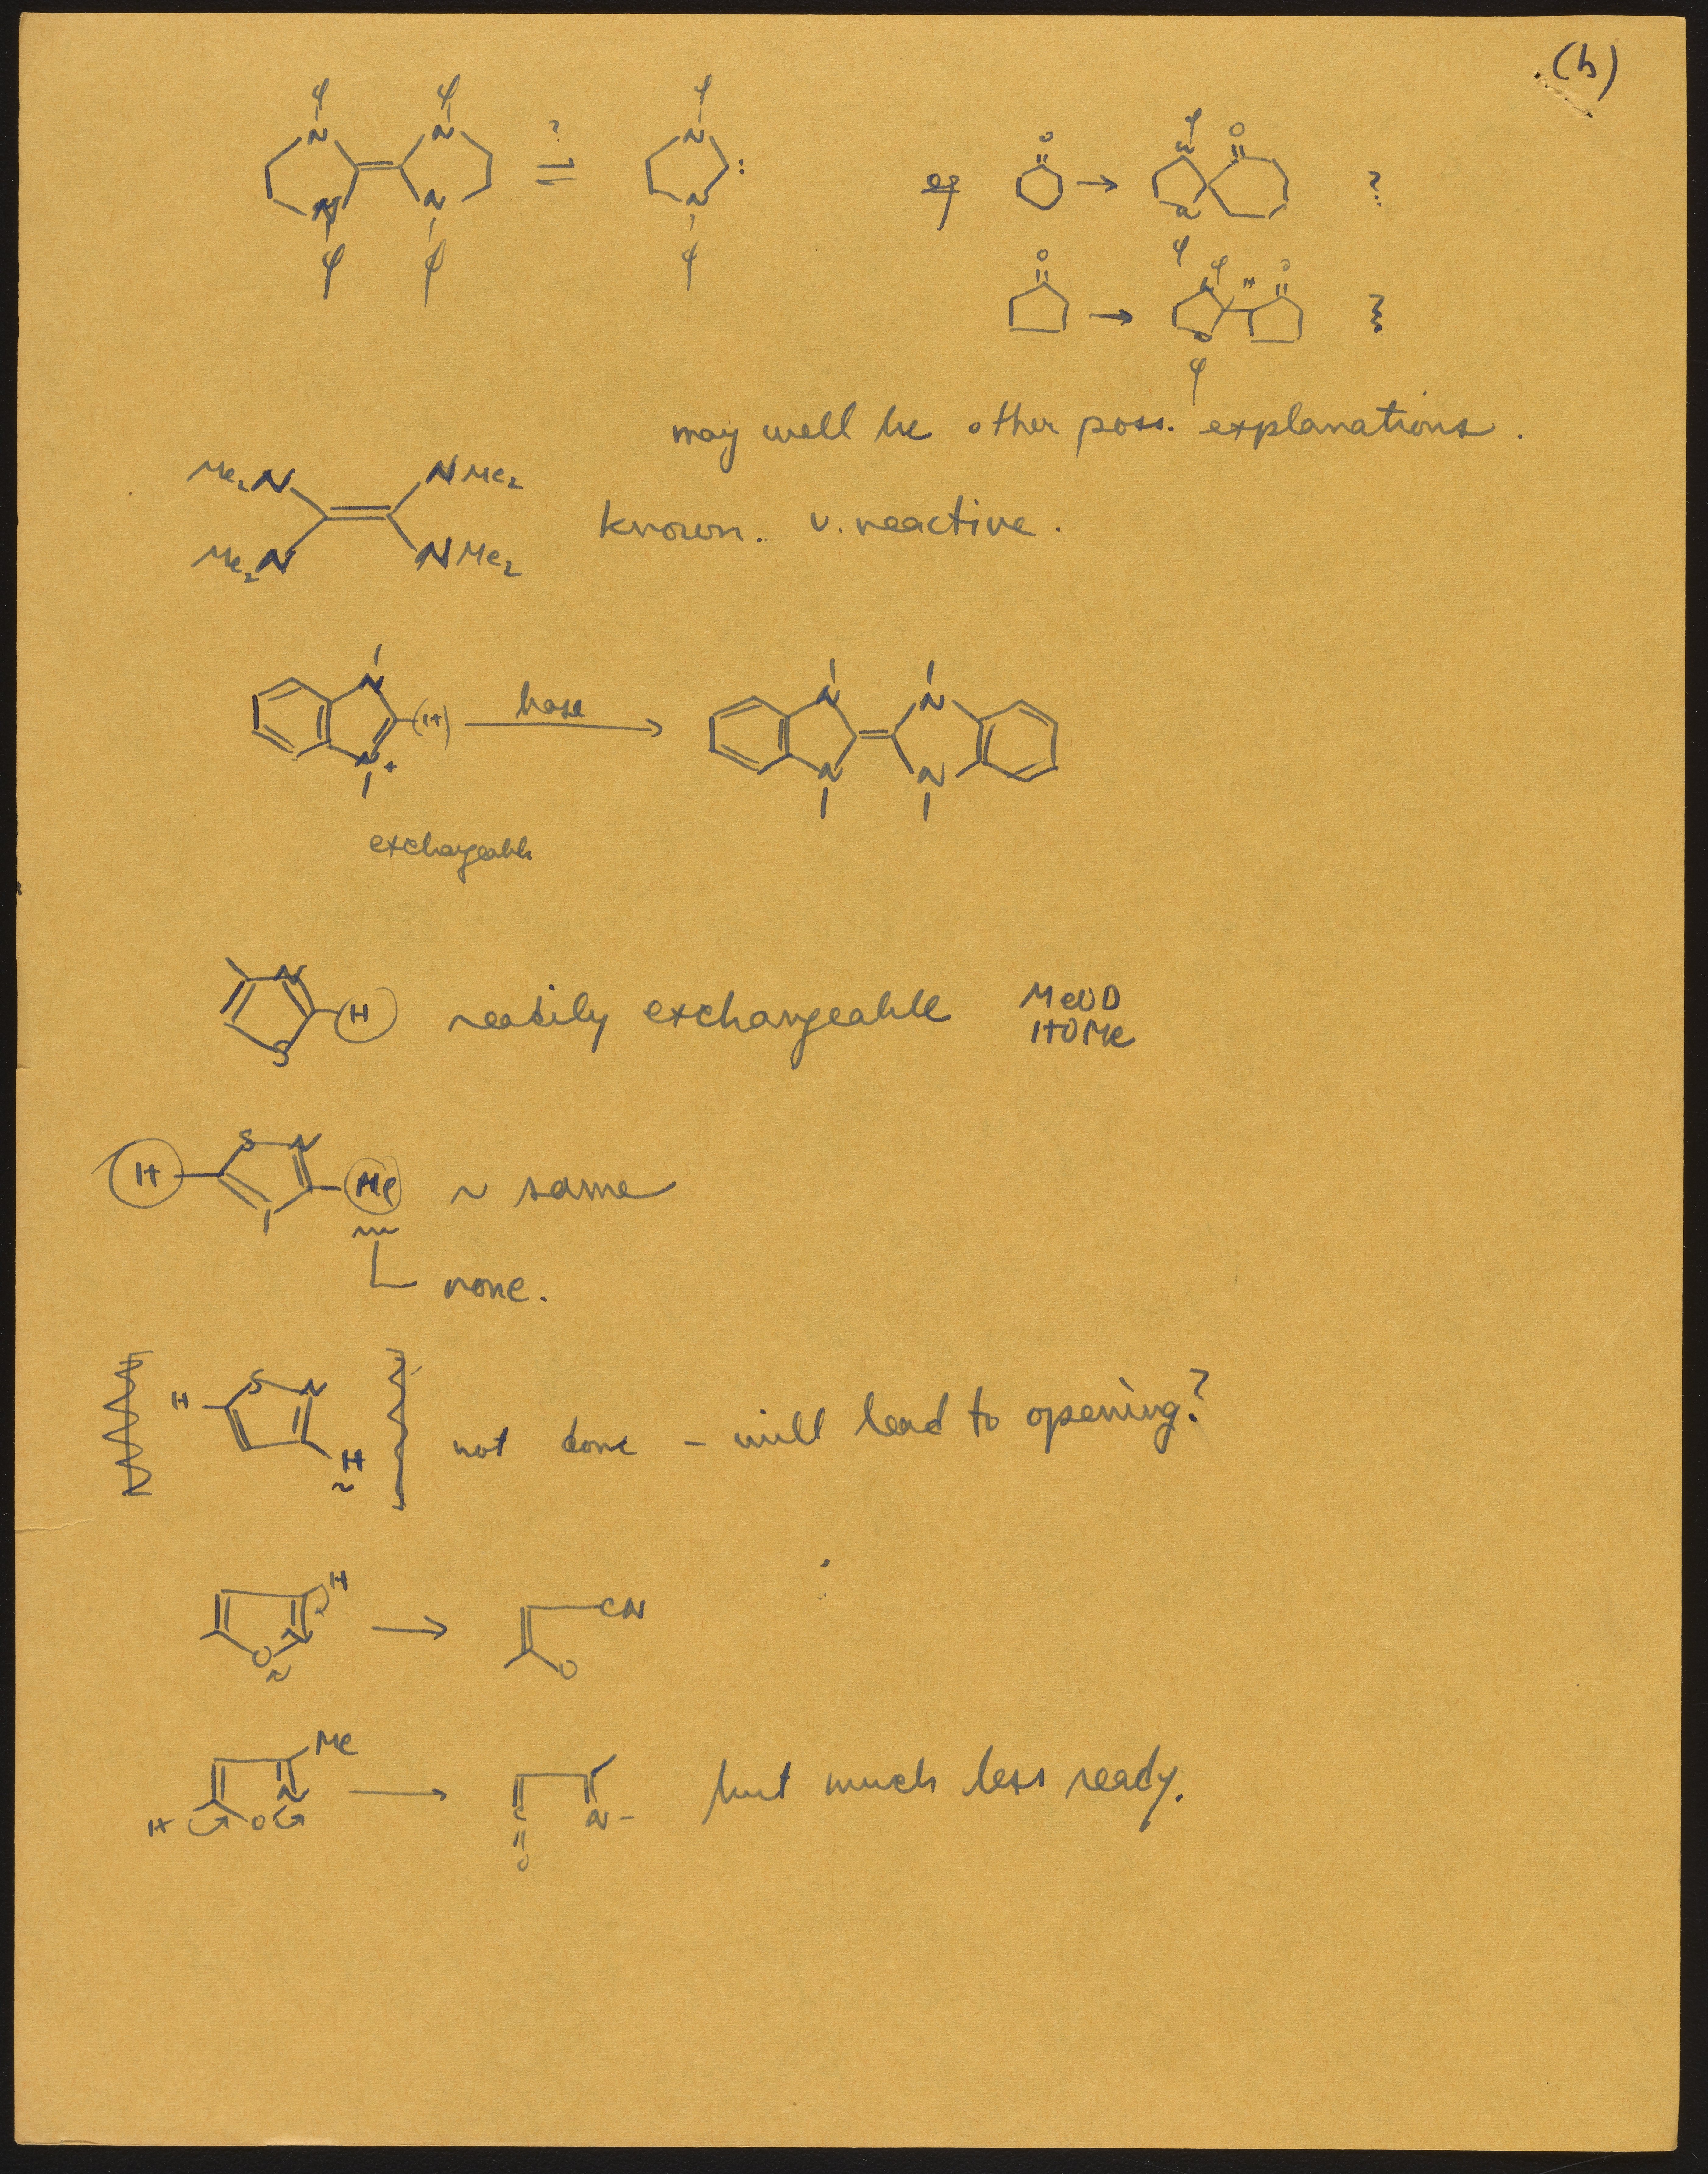 (b)
φ φ φ
N N ? N :
N N N
φ φ φ
eg O → φ N O ?
N φ
O → φ N H O ?
N φ
may well be other poss. explanations.
Me₂N NMe₂
known. v. reactive.
Me₂N NMe₂
N (H) base N N
N+ N N
exchangeable
N H readily exchangeable MeOD
S HOMe
H S N Me ~ same
none.
H S N H not done – will lead to opening?
H O N → CN O
Me H O N → C O N – but much less ready.